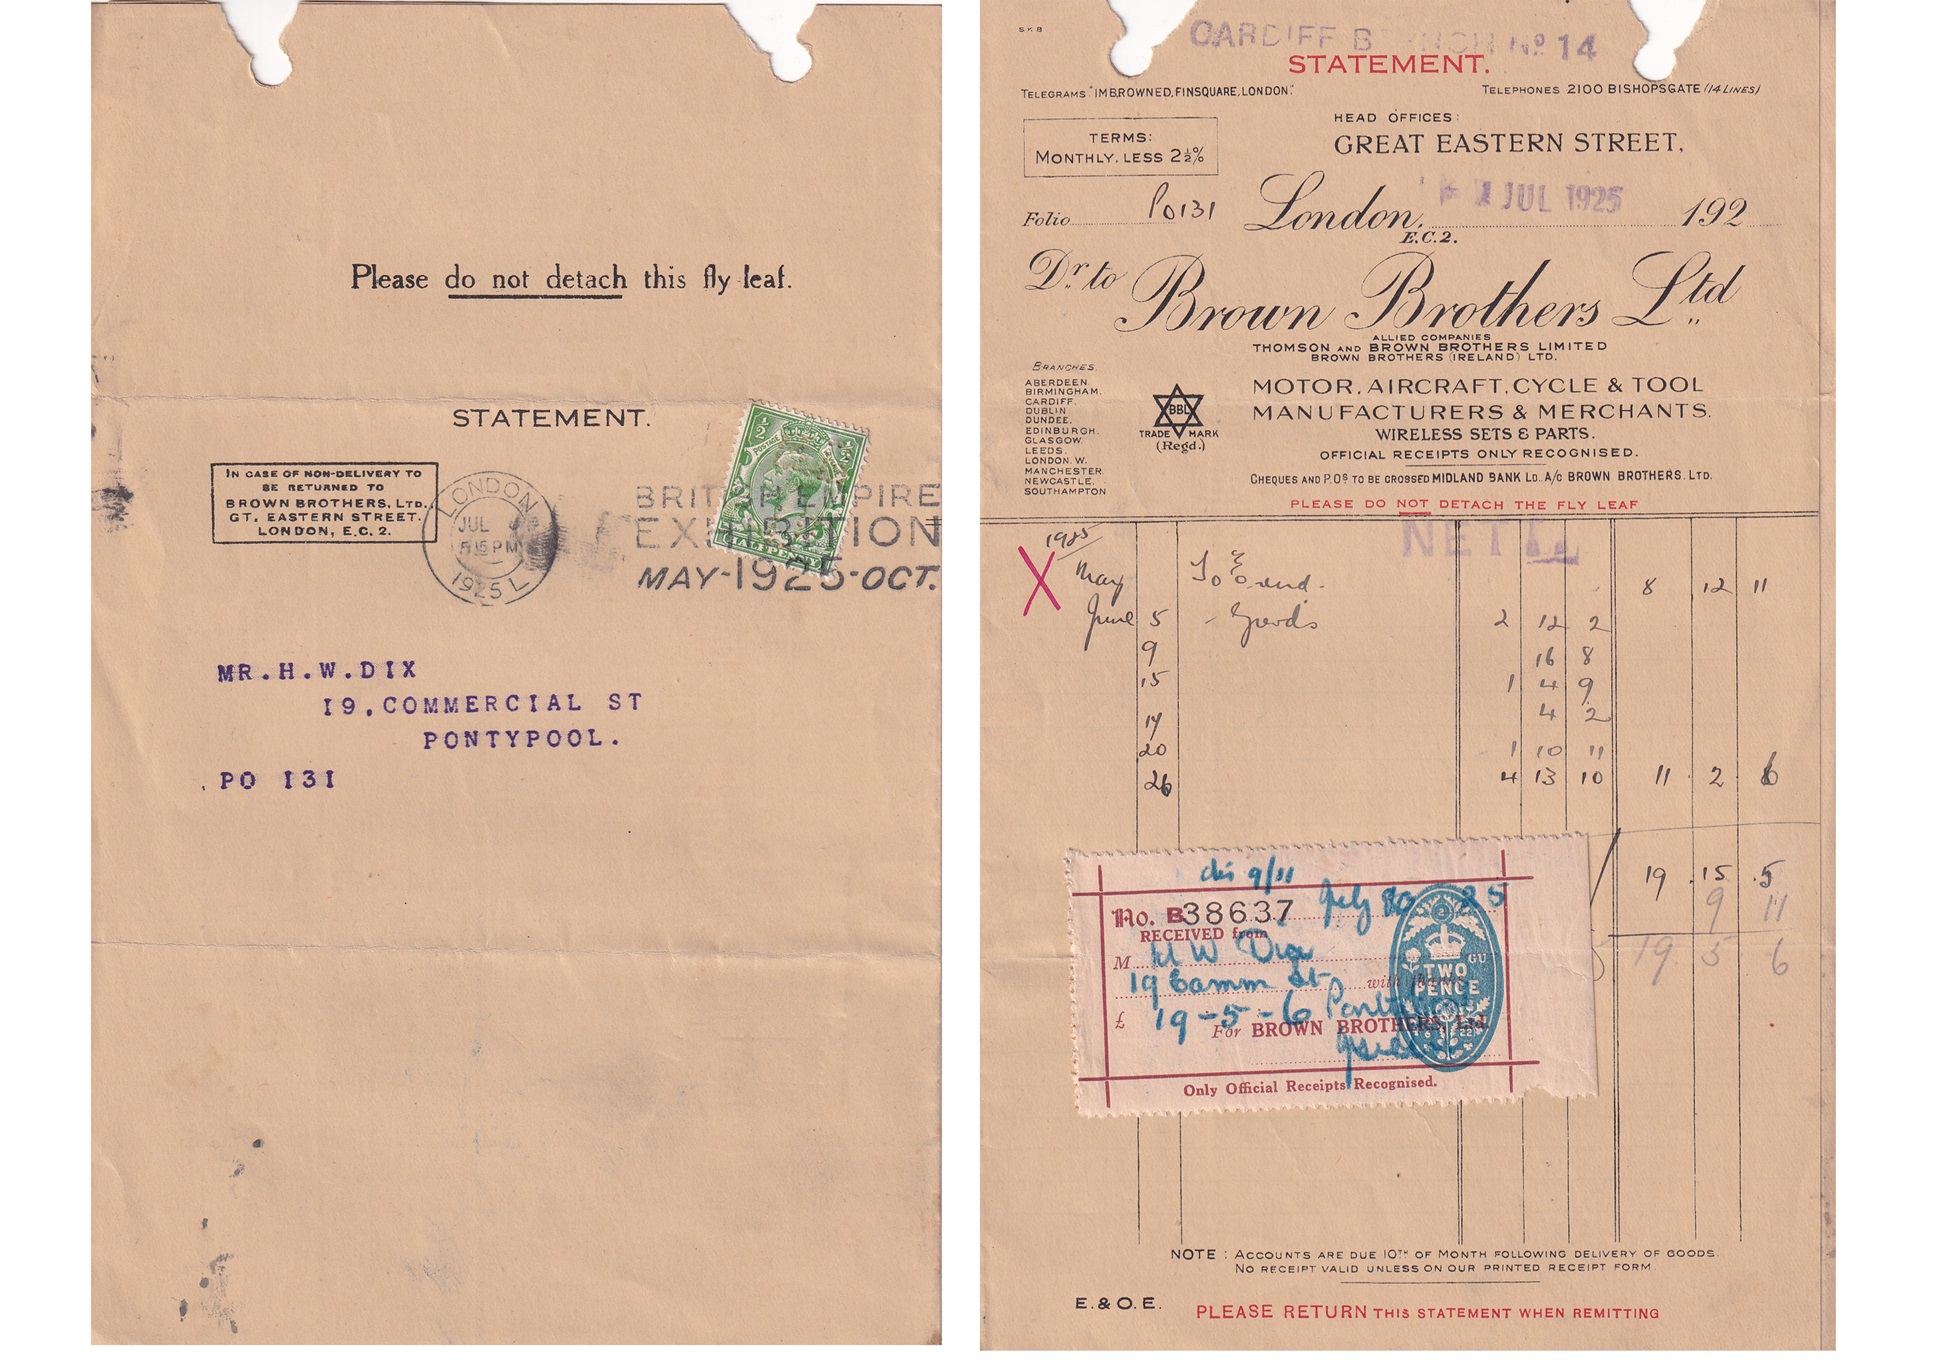 Please do not detach this fly leaf.
STATEMENT.
IN CASE OF NON-DELIVERY TO
BE RETURNED TO
BROWN BROTHERS, LTD.,
GT. EASTERN STREET.
LONDON, E.C. 2.
LONDON
JUL
5 15 PM
1925 L
BRITISH EMPIRE
EXHIBITION
MAY-1925-OCT.
½ ½
POSTAGE
HALFPENNY
MR.H.W.DIX
19,COMMERCIAL ST
PONTYPOOL.
PO 131
S K B
CARDIFF BRANCH No 14
STATEMENT.
TELEGRAMS "IMBROWNED, FINSQUARE, LONDON."
TELEPHONES 2100 BISHOPSGATE (14 LINES)
TERMS:
MONTHLY, LESS 2½%
HEAD OFFICES:
GREAT EASTERN STREET,
Folio PO131
London, E.C.2. JUL 1925 192
Dr. to Brown Brothers Ltd
ALLIED COMPANIES
THOMSON AND BROWN BROTHERS LIMITED
BROWN BROTHERS (IRELAND) LTD.
BRANCHES.
ABERDEEN.
BIRMINGHAM.
CARDIFF.
DUBLIN
DUNDEE.
EDINBURGH.
GLASGOW.
LEEDS.
LONDON. W.
MANCHESTER.
NEWCASTLE.
SOUTHAMPTON
BBL
TRADE MARK
(Regd.)
MOTOR, AIRCRAFT, CYCLE & TOOL
MANUFACTURERS & MERCHANTS.
WIRELESS SETS & PARTS.
OFFICIAL RECEIPTS ONLY RECOGNISED.
CHEQUES AND P.Os TO BE CROSSED MIDLAND BANK LD., A/C BROWN BROTHERS. LTD.
PLEASE DO NOT DETACH THE FLY LEAF
NETT
1925
X May To 8 12 11
June 5 - Goods 2 12 2
9 16 8
15 1 4 9
17 4 2
20 1 10 11
26 4 13 10 11 2 6
19 15 5
9 11
19 5 6
dis 9/11
No. B38637 July 25
RECEIVED from
M H W Dix
19 Comm St with thanks
£ 19-5-6
For BROWN BROTHERS, Ltd.
TWO PENCE
GU
Only Official Receipts Recognised.
NOTE: ACCOUNTS ARE DUE 10TH OF MONTH FOLLOWING DELIVERY OF GOODS.
NO RECEIPT VALID UNLESS ON OUR PRINTED RECEIPT FORM.
E. & O. E.
PLEASE RETURN THIS STATEMENT WHEN REMITTING